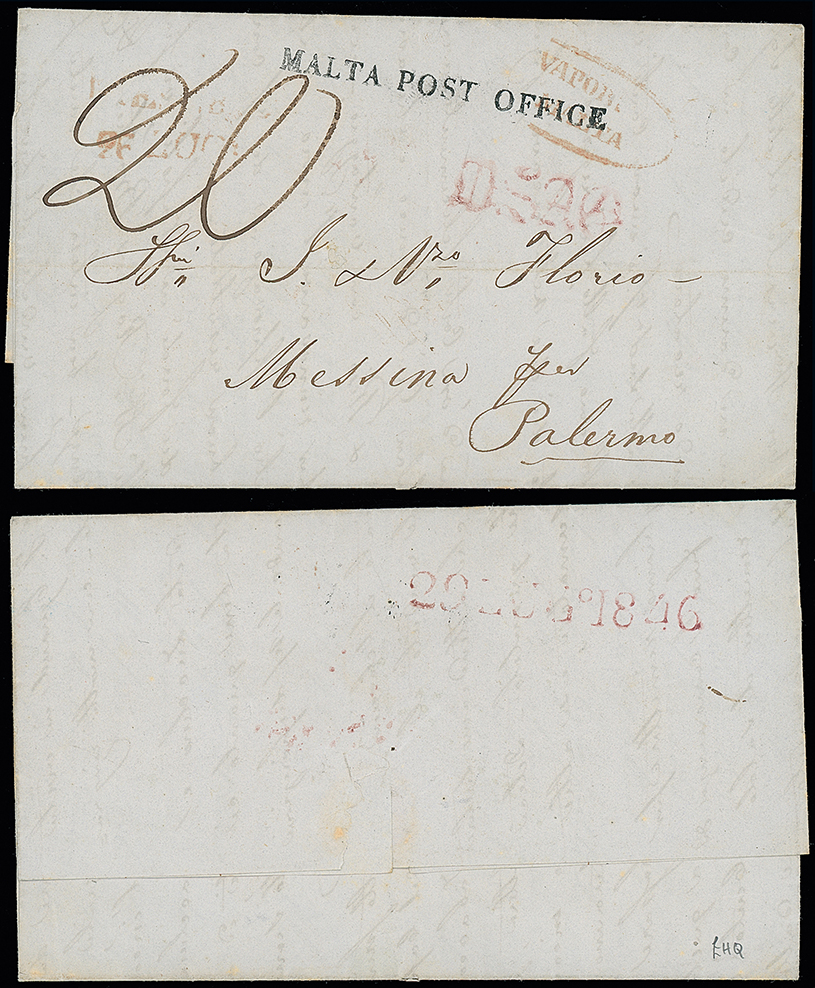 MALTA POST OFFICE
VAPORI
20
26 LUG
Sgri I. & Vzo Florio
Messina per
Palermo
29 LUGo 1846
£HQ